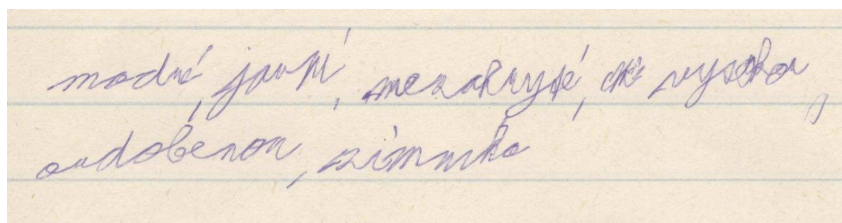 modré, jarní, nezakryté, vysokou,
ozdobenou, zimníko